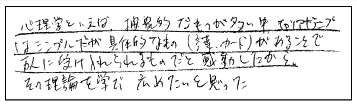 心理学といえば 抽象的なものが多い中
はシンプルだが具体的なもの(詩、カード)があることで
人に受け入れられるものだと感動したから。
その理論を学び 広めたいと思った